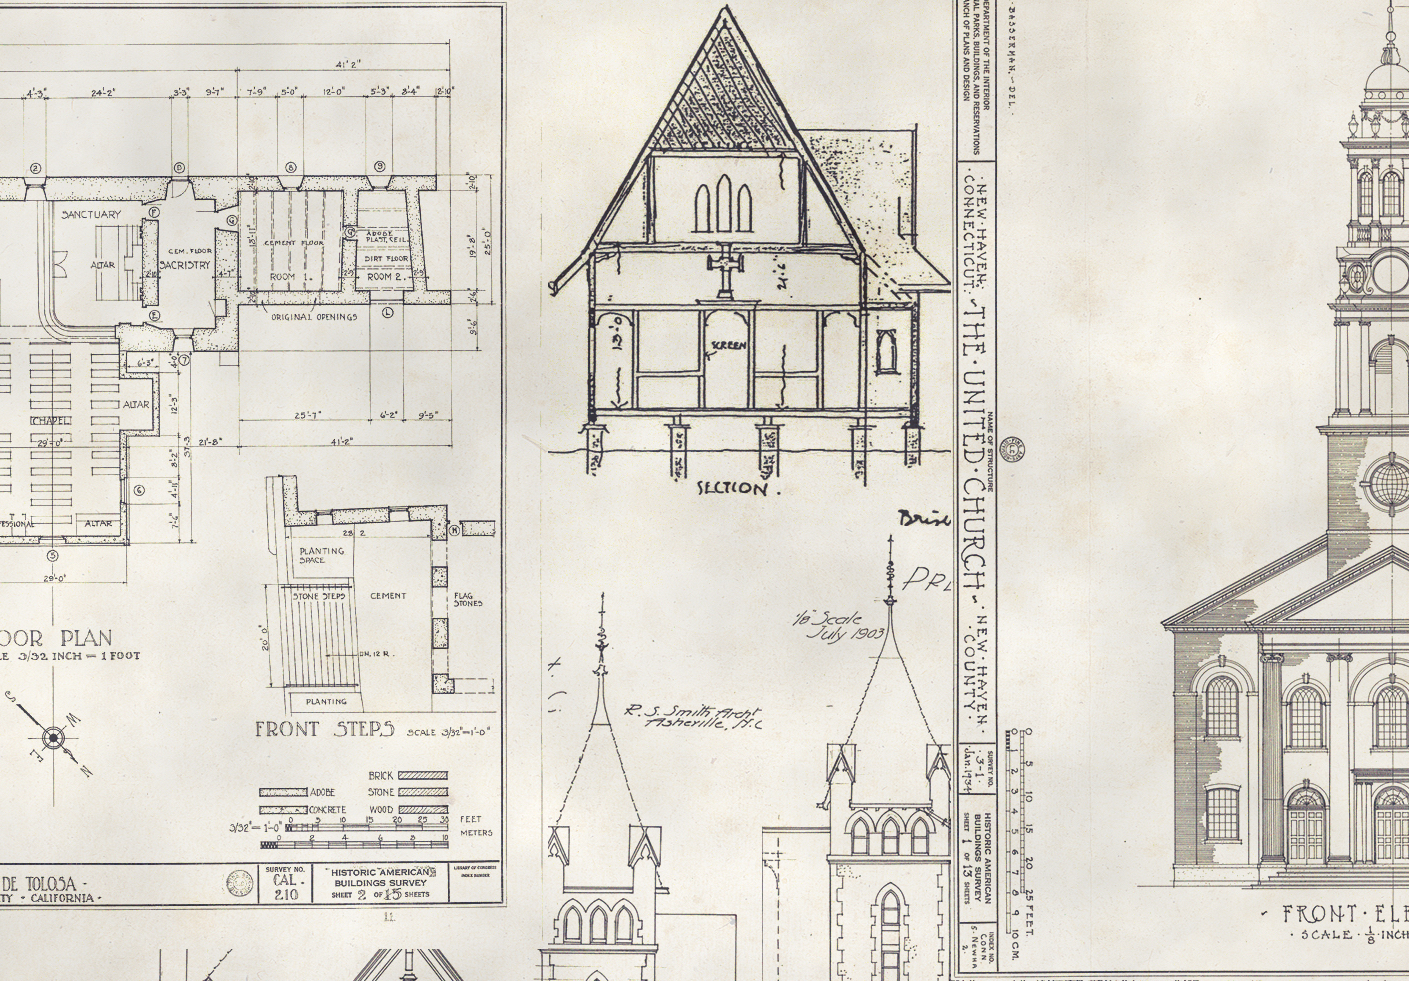 41'2"
4'-3" 24'-2" 3'-3" 9'-7" 7'-9" 5'-0" 12'-0" 5'-3" 8'-4" 2'-10"
SANCTUARY
ALTAR
CEM. FLOOR
SACRISTRY
CEMENT FLOOR
ROOM 1.
ADOBE
PLAST. CEIL.
DIRT FLOOR
ROOM 2.
ORIGINAL OPENINGS
2'-10"
19'-8"
25'-0"
2'-6"
9'-6"
6'-3"
ALTAR
12'-3"
CHAPEL
29'-0"
21'-8"
37'-3
8'-2"
4'-11"
25'-7" 6'-2" 9'-5"
41'-2"
ALTAR
29'-0"
OOR PLAN
LE 3/32 INCH = 1 FOOT
28 2
PLANTING
SPACE
STONE STEPS
CEMENT
FLAG
STONES
20' 0"
DN. 12 R.
PLANTING
FRONT STEPS SCALE 3/32"=1'-0"
BRICK
ADOBE STONE
CONCRETE WOOD
3/32" = 1'-0" 0 5 10 15 20 25 30 FEET
0 2 4 6 8 10 METERS
DE TOLOSA -
TY • CALIFORNIA •
SURVEY NO.
CAL -
210
HISTORIC AMERICAN
BUILDINGS SURVEY
SHEET 2 OF 15 SHEETS
LIBRARY OF CONGRESS
INDEX NUMBER
13'-0
SCREEN
SECTION.
1/8" Scale
July 1903
R. S. Smith Archt
Asheville, N.C
DEPARTMENT OF THE INTERIOR
AL PARKS, BUILDINGS, AND RESERVATIONS
ANCH OF PLANS AND DESIGN
BASSERMAN, - DEL.
NAME OF STRUCTURE
·THE·UNITED·CHURCH·
·NEW·HAVEN·
·CONNECTICUT·
·NEW·HAVEN·
·COUNTY·
SURVEY NO.
·3-1·
Jan. 1934
HISTORIC AMERICAN
BUILDINGS SURVEY
SHEET 1 OF 13 SHEETS
INDEX NO.
CONN
5-NEWHA
2-
0 5 10 15 20 25 FEET.
0 1 2 3 4 5 6 7 8 9 10 CM.
FRONT·ELE
·SCALE·1/8·INCH